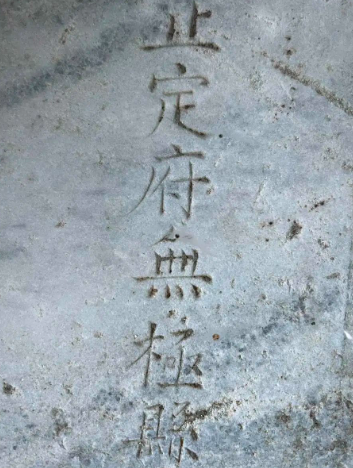 正定府無極縣